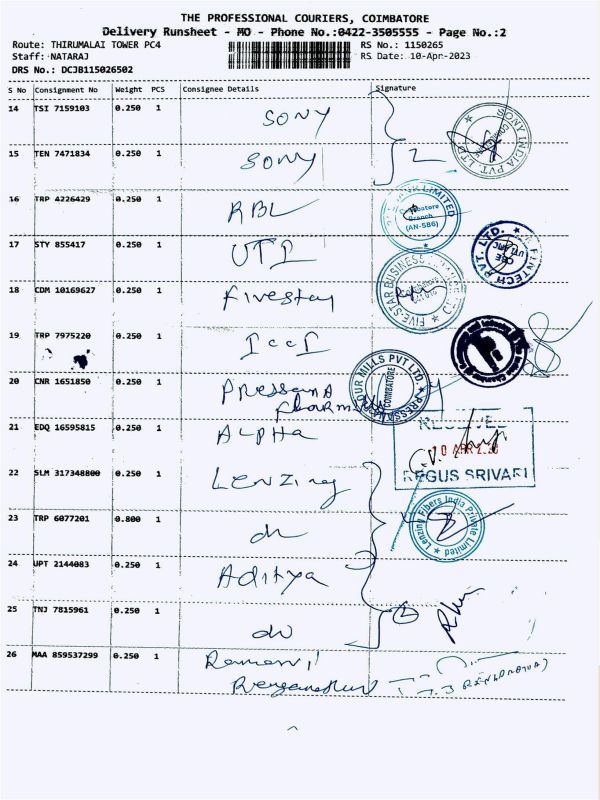 THE PROFESSIONAL COURIERS, COIMBATORE
Delivery Runsheet - MO - Phone No.:0422-3505555 - Page No.:2
Route: THIRUMALAI TOWER PC4 RS No.: 1150265
Staff: NATARAJ RS Date: 10-Apr-2023
DRS No.: DCJB115026502
S No Consignment No Weight PCS Consignee Details Signature
14 TSI 7159103 0.250 1 SONY
SONY INDIA PVT. LTD.
15 TEN 7471834 0.250 1 SONY 2
16 TRP 4226429 0.250 1 RBL
BANK LIMITED
Coimbatore
Branch
(AN-586)
17 STY 855417 0.250 1 UTI
FINTECH PVT. LTD.
CBE
18 CDM 10169627 0.250 1 Fivestar
FIVE-STAR BUSINESS
19 TRP 7975220 0.250 1 ICCI
20 CNR 1651850 0.250 1 Pressana
FLOUR MILLS PVT LTD.
COIMBATORE
21 EDQ 16595815 0.250 1 ALPHA
RECEIVED
10 APR
REGUS SRIVARI
22 SLM 317348800 0.250 1 Lenzing
23 TRP 6077201 0.800 1 do
Lenzing Fibers India Private Limited
24 UPT 2144083 0.250 1 Aditya
25 TNJ 7815961 0.250 1 do 2
26 MAA 859537299 0.250 1